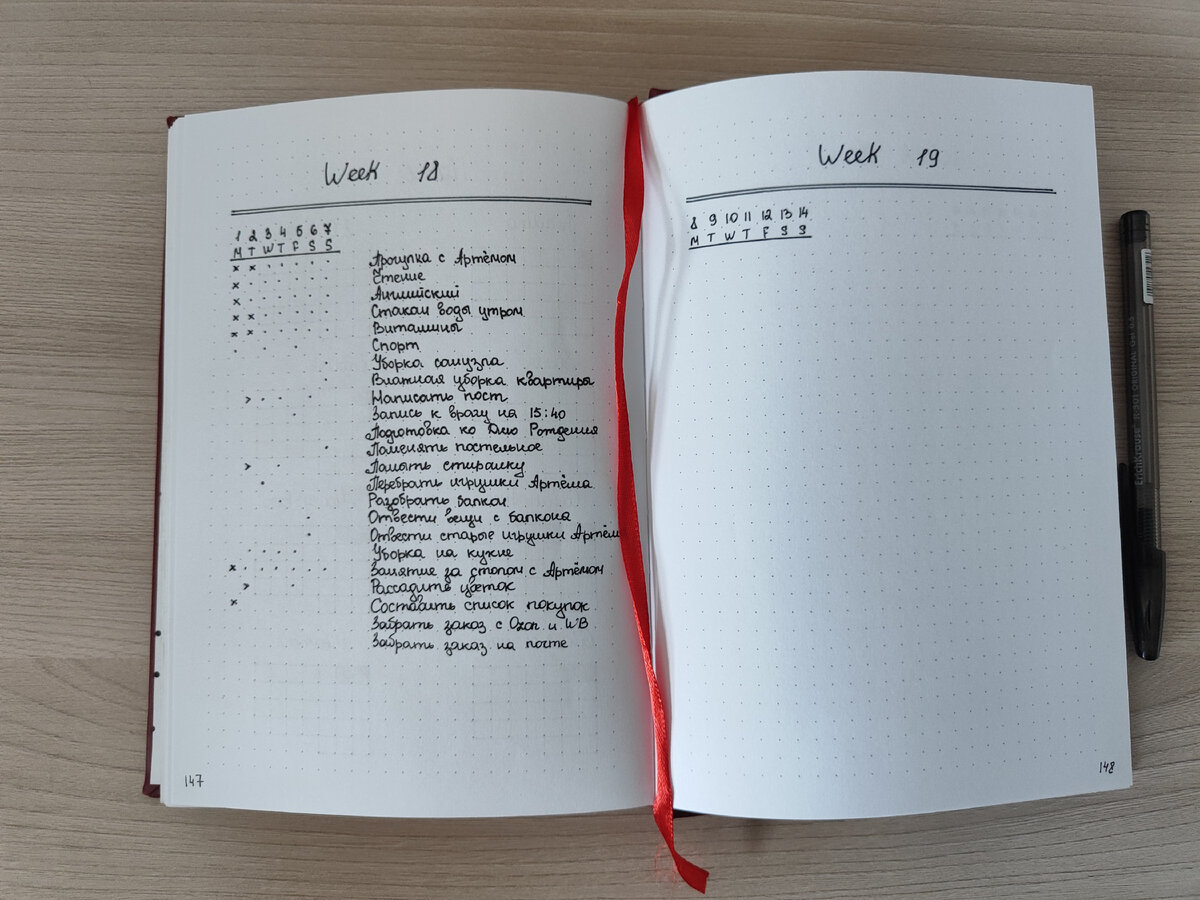 Week 18
1 2 3 4 5 6 7
M T W T F S S
Прогулка с Артёмом
Чтение
Английский
Стакан воды утром
Витамины
Спорт
Уборка санузла
Влажная уборка квартиры
Написать пост
Запись к врачу на 15:40
Подготовка ко Дню Рождения
Поменять постельное
Помыть стиралку
Перебрать игрушки Артёма
Разобрать балкон
Отвести вещи с балкона
Отвести старые игрушки Артём
Уборка на кухне
Занятие за столом с Артёмом
Рассадить цветок
Составить список покупок
Забрать заказ с Ozon и WB
Забрать заказ на почте
147
Week 19
8 9 10 11 12 13 14
M T W T F S S
148
ErichKrause